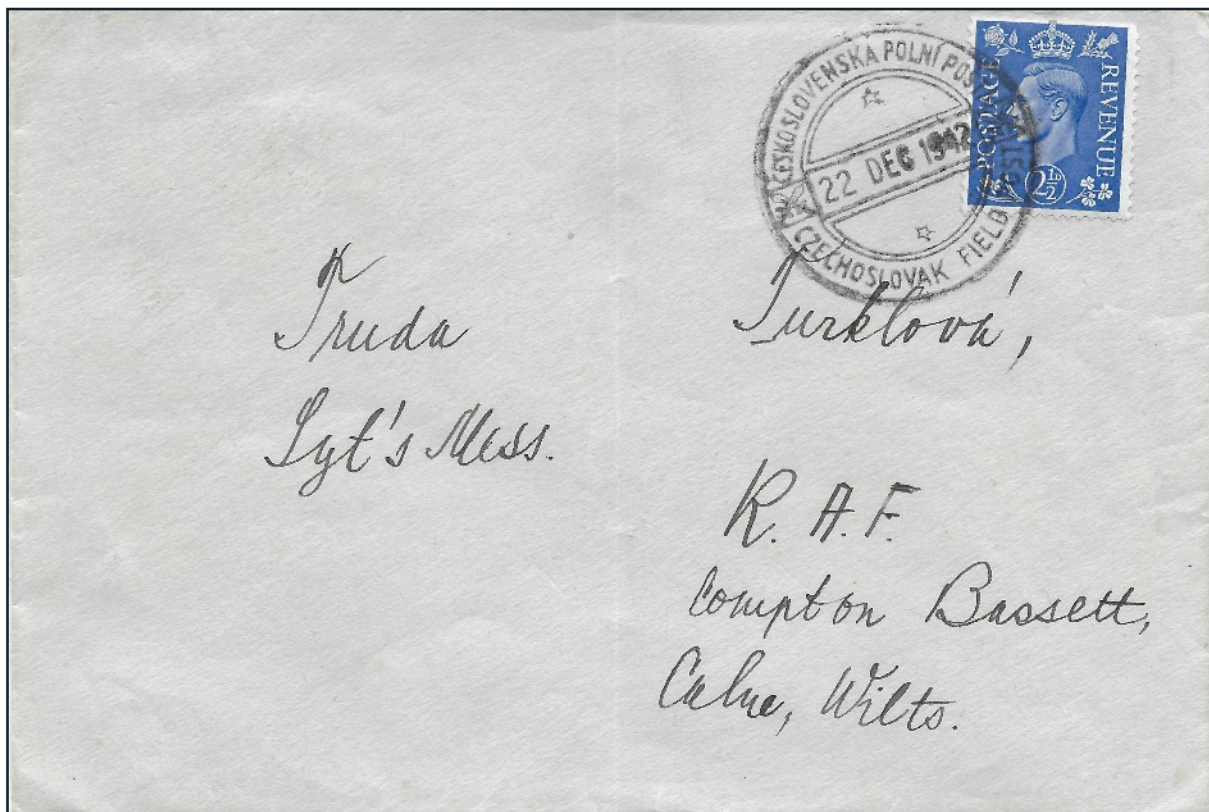 ČESKOSLOVENSKA POLNÍ POŠTA
22 DEC 1942
CZECHOSLOVAK FIELD POST
POSTAGE REVENUE
2½D
Truda Turklová,
Sgt's Mess.
R. A. F.
Compton Bassett,
Calne, Wilts.